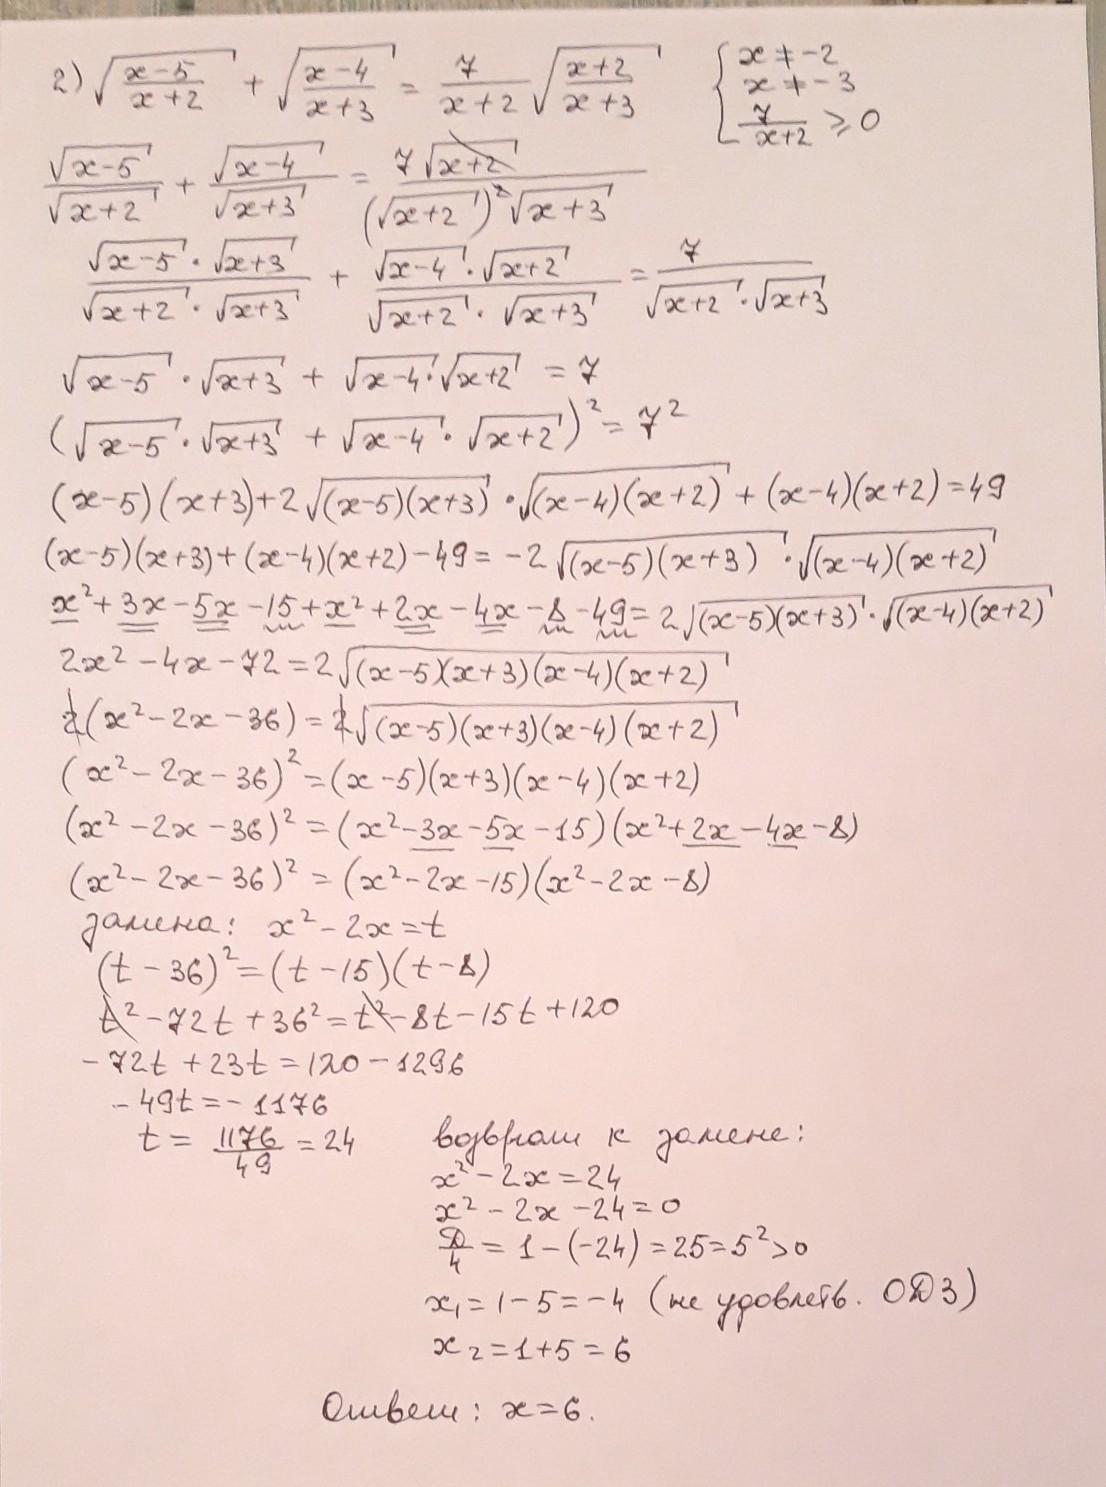 2) √((x-5)/(x+2)) + √((x-4)/(x+3)) = 7/(x+2) √((x+2)/(x+3)) { x ≠ -2
x ≠ -3
7/(x+2) ⩾ 0
√(x-5)/√(x+2) + √(x-4)/√(x+3) = 7√(x+2)/((√(x+2))²√(x+3))
(√(x-5)·√(x+3))/(√(x+2)·√(x+3)) + (√(x-4)·√(x+2))/(√(x+2)·√(x+3)) = 7/(√(x+2)·√(x+3))
√(x-5)·√(x+3) + √(x-4)·√(x+2) = 7
(√(x-5)·√(x+3) + √(x-4)·√(x+2))² = 7²
(x-5)(x+3)+2√((x-5)(x+3))·√((x-4)(x+2)) + (x-4)(x+2)=49
(x-5)(x+3)+(x-4)(x+2)-49= -2√((x-5)(x+3))·√((x-4)(x+2))
x²+3x-5x-15+x²+2x-4x-8-49= 2√((x-5)(x+3))·√((x-4)(x+2))
2x²-4x-72=2√((x-5)(x+3)(x-4)(x+2))
2(x²-2x-36)=2√((x-5)(x+3)(x-4)(x+2))
(x²-2x-36)²=(x-5)(x+3)(x-4)(x+2)
(x²-2x-36)²=(x²-3x-5x-15)(x²+2x-4x-8)
(x²-2x-36)²=(x²-2x-15)(x²-2x-8)
замена: x²-2x=t
(t-36)²=(t-15)(t-8)
t²-72t+36²=t²-8t-15t+120
-72t+23t=120-1296
-49t=-1176
t = 1176/49 = 24
возврат к замене:
x²-2x=24
x²-2x-24=0
D/4 = 1-(-24)=25=5²>0
x₁=1-5=-4 (не удовлетв. ОДЗ)
x₂=1+5=6
Ответ: x=6.